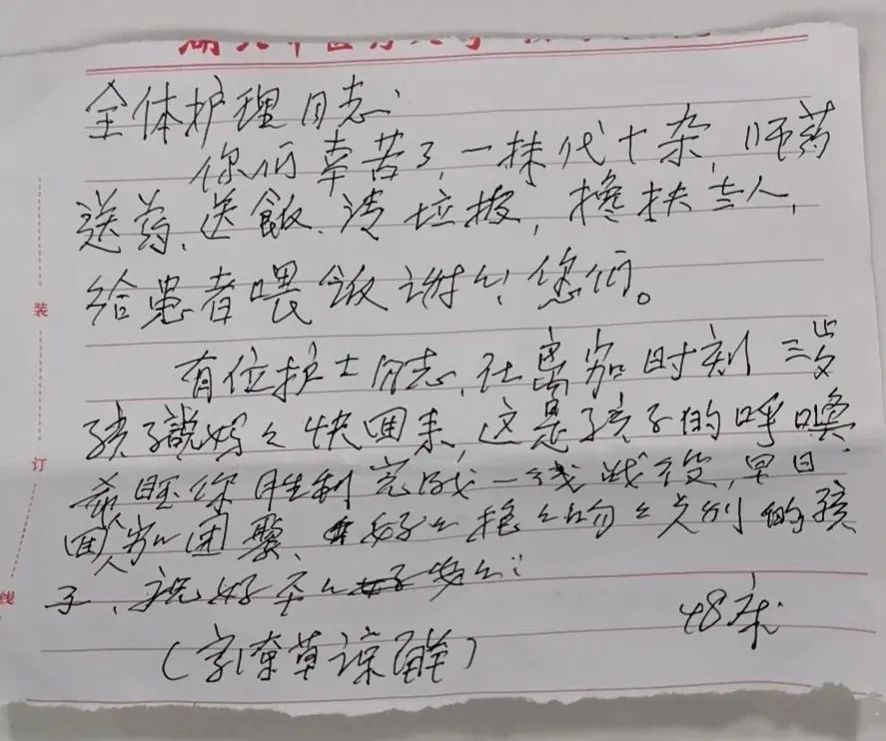 全体护理同志:
你们辛苦了,一抹代十杂,师药
送药、送飯、清垃圾,搀扶老人,
给患者喂飯谢々!您们。
有位护士同志,在离家时刻三岁
孩子説妈々快回来,这是孩子的呼喚
希望你胜利完成一线战役,早日
回家团聚、好々抱々吻々久别的孩
子,祝好
(字潦草谅解)
48床
装
订
线